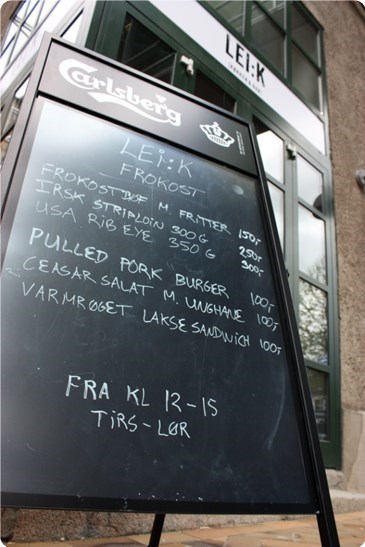 LEi:K
Carlsberg
LEi:K
FROKOST
FROKOSTBØF M. FRITTER 150,-
IRSK STRIPLOIN 300 G 250,-
USA RIB EYE 350 G 300,-
PULLED PORK BURGER 100,-
CEASAR SALAT M. UNGHANE 100,-
VARMRØGET LAKSE SANDWICH 100,-
FRA KL 12-15
TIRS-LØR